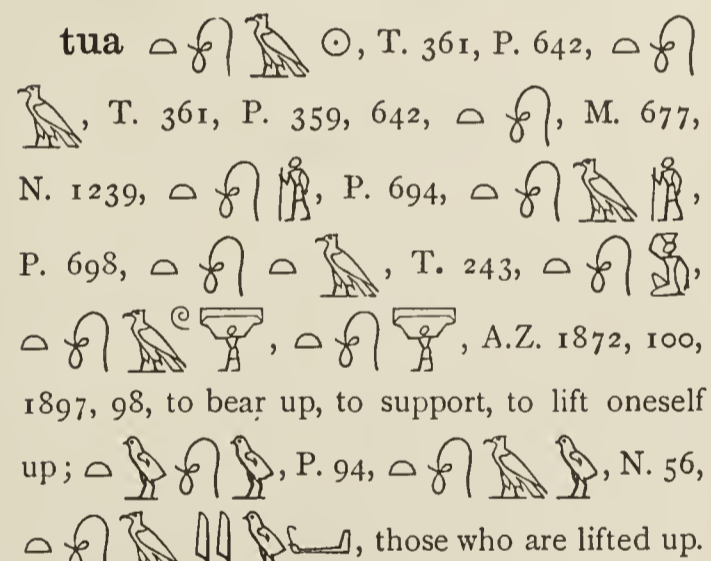 tua 𓏏𓍯𓄿𓇳, T. 361, P. 642, 𓏏𓍯
𓄿, T. 361, P. 359, 642, 𓏏𓍯, M. 677,
N. 1239, 𓏏𓍯𓀙, P. 694, 𓏏𓍯𓄿𓀙,
P. 698, 𓏏𓍯𓏏𓄿, T. 243, 𓏏𓍯𓀋,
𓏏𓍯𓄿𓏲, 𓏏𓍯, A.Z. 1872, 100,
1897, 98, to bear up, to support, to lift oneself
up; 𓏏𓅱𓍯𓅱, P. 94, 𓏏𓍯𓄿𓅱, N. 56,
𓏏𓍯𓄿𓇌𓅱𓂝, those who are lifted up.